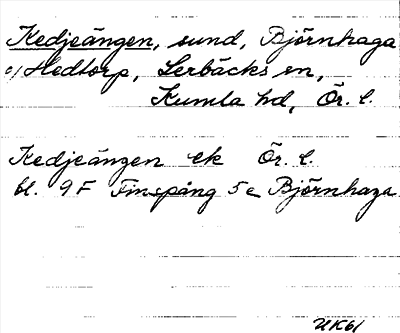 Kedjeängen, sund, Björnhaga
o/Hedtorp, Lerbäcks sn,
Kumla hd, Ör. l.
Kedjeängen ek Ör. l.
bl. 9F Finspång 5e Björnhaga
UK61